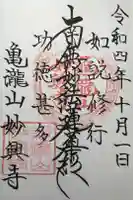 令和四年十月一日
如説修行
南無妙法蓮華経
功徳甚多
亀龍山妙興寺